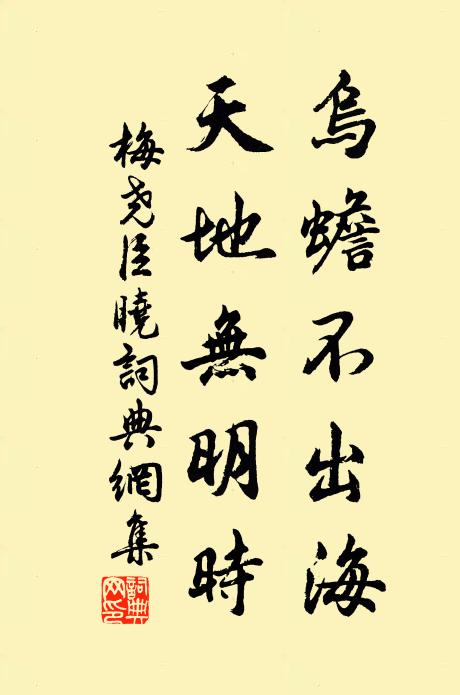 烏蟾不出海
天地無明時
梅堯臣曉詞典網集
詞典網印